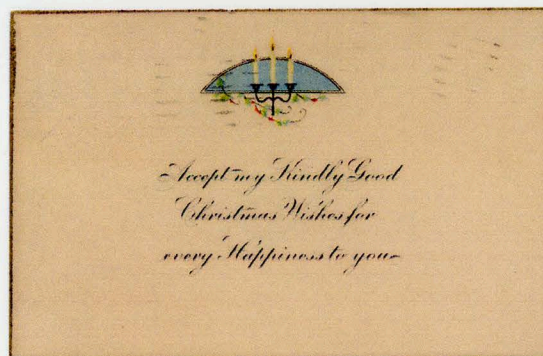 Accept my Kindly Good
Christmas Wishes for
every Happiness to you